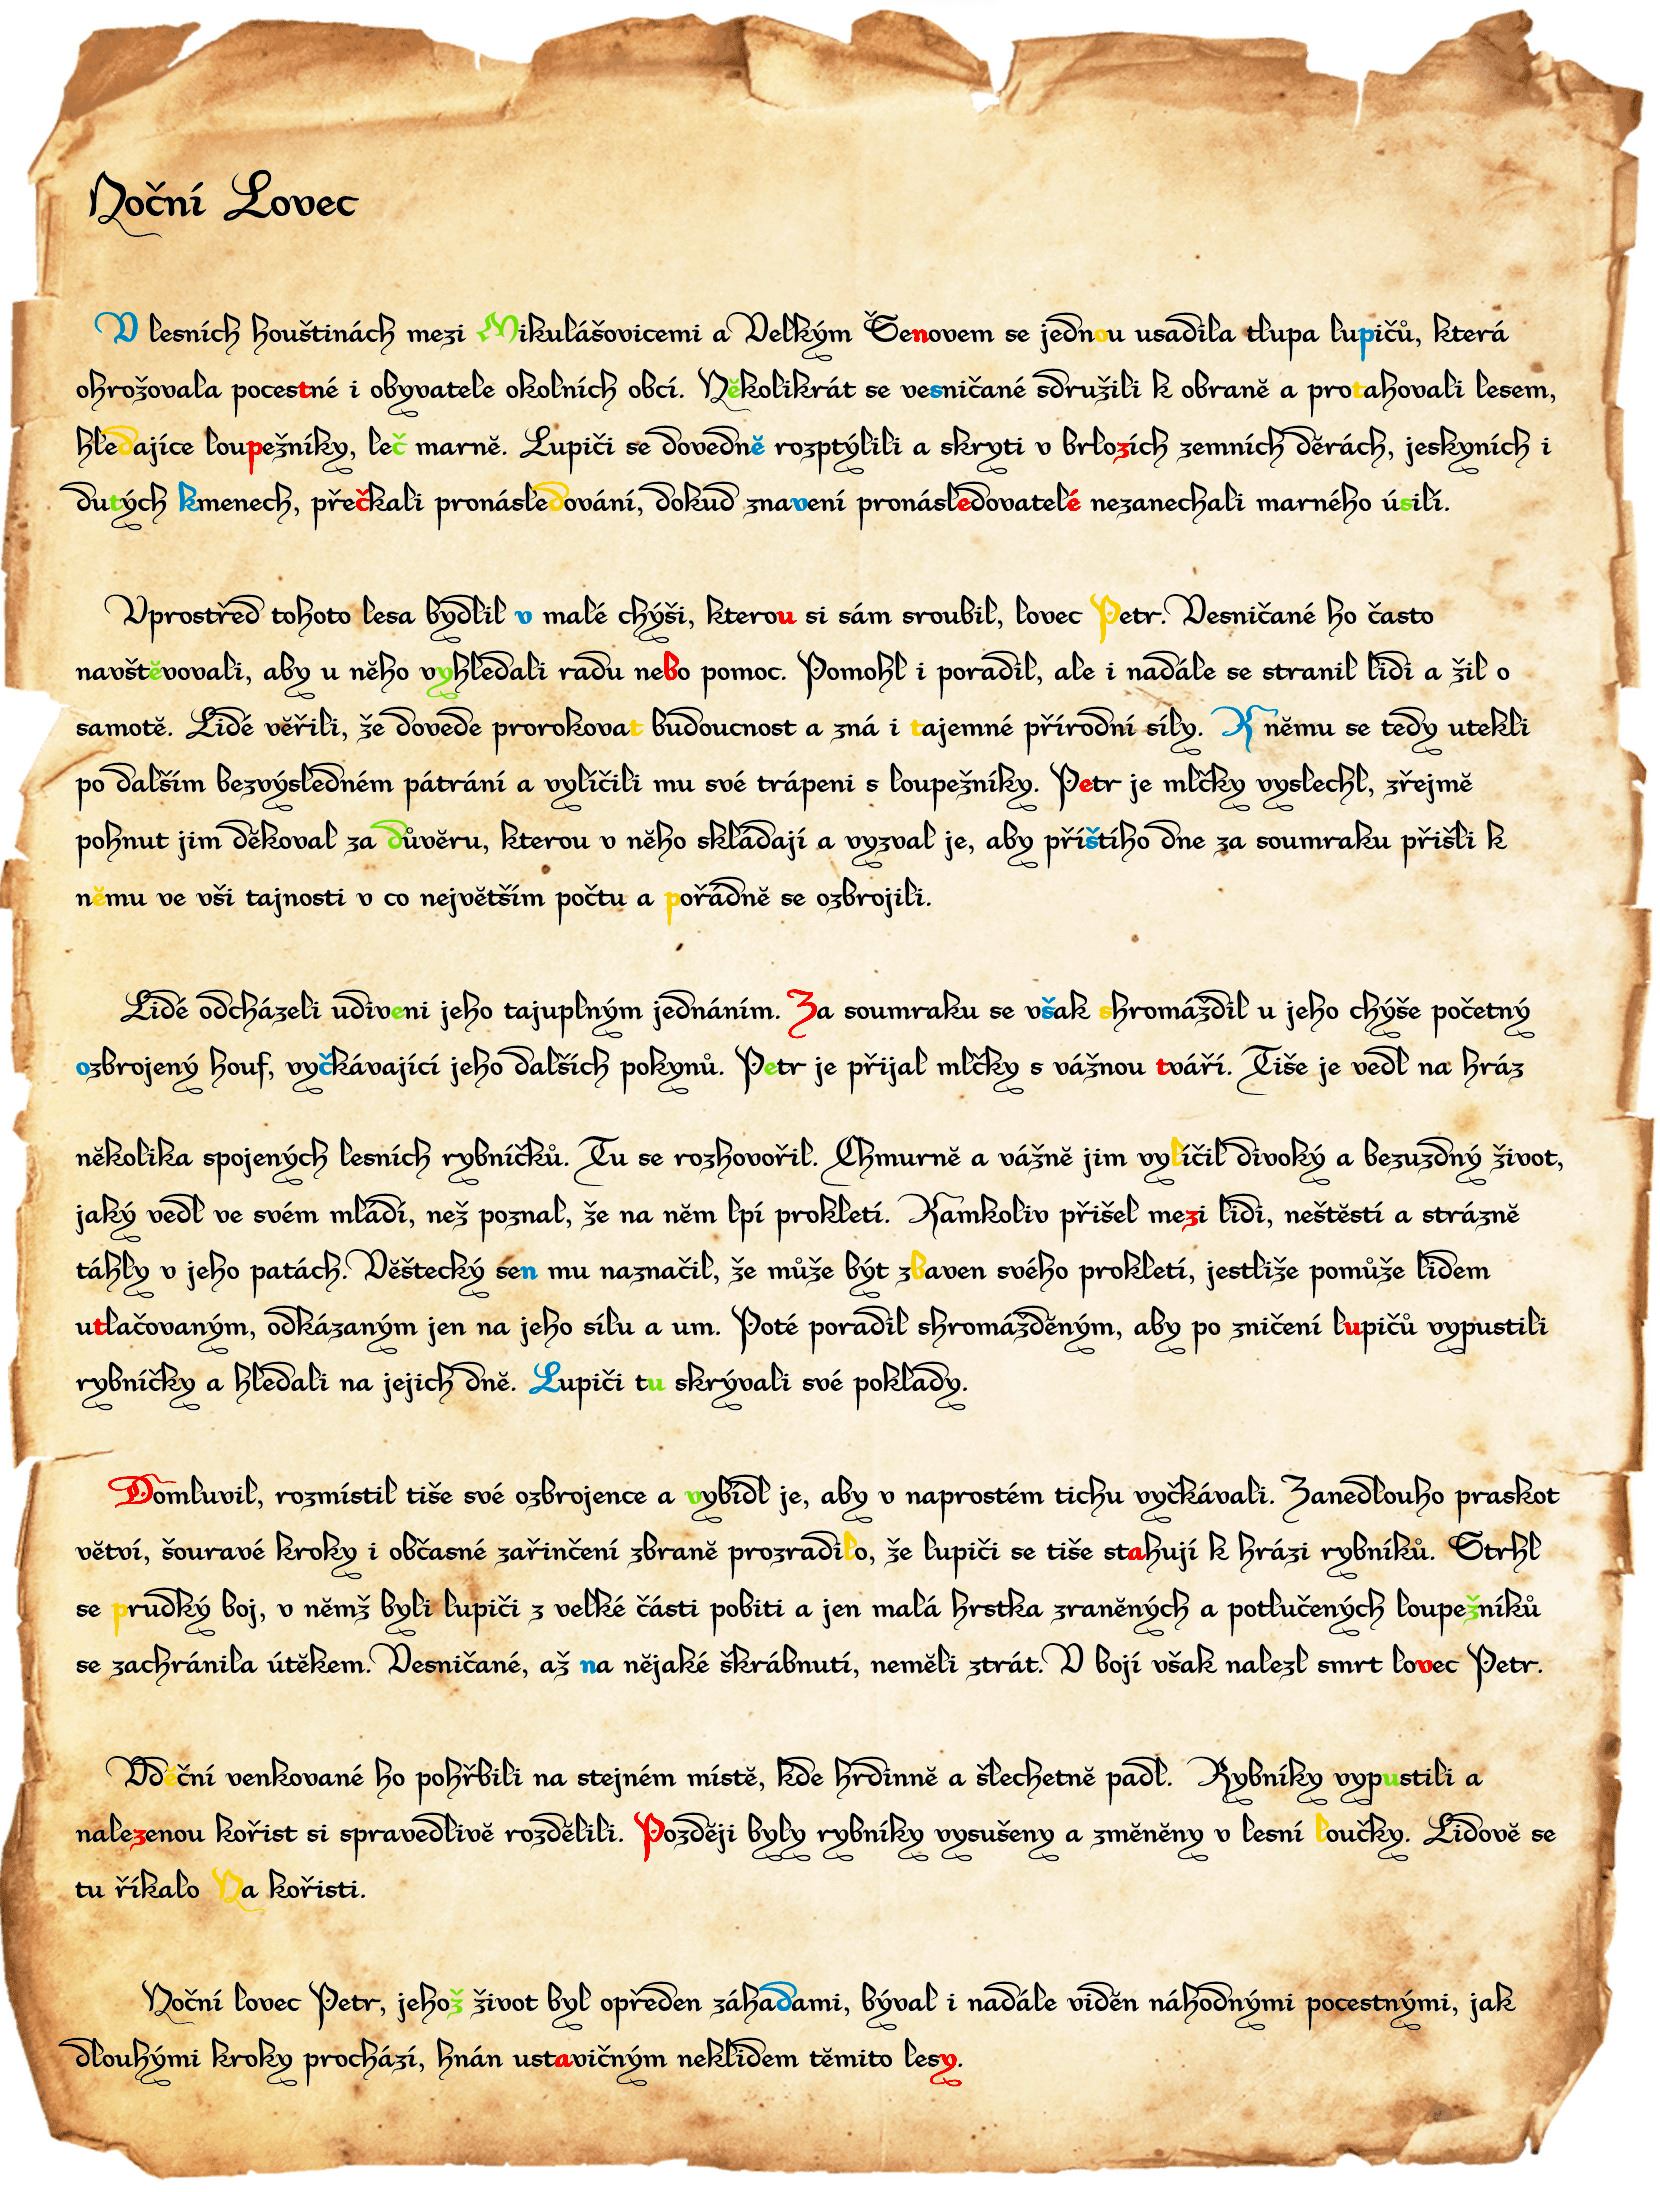 Noční Lovec
V lesních houštinách mezi Mikulášovicemi a Velkým Šenovem se jednou usadila tlupa lupičů, která
ohrožovala pocestné i obyvatele okolních obcí. Několikrát se vesničané sdružili k obraně a protahovali lesem,
hledajíce loupežníky, leč marně. Lupiči se dovedně rozptýlili a skryti v brlozích zemních děrách, jeskyních i
dutých kmenech, přečkali pronásledování, dokud znavení pronásledovatelé nezanechali marného úsilí.
Vprostřed tohoto lesa bydlil v malé chýši, kterou si sám sroubil, lovec Petr. Vesničané ho často
navštěvovali, aby u něho vyhledali radu nebo pomoc. Pomohl i poradil, ale i nadále se stranil lidi a žil o
samotě. Lidé věřili, že dovede prorokovat budoucnost a zná i tajemné přírodní síly. K němu se tedy utekli
po dalším bezvýsledném pátrání a vylíčili mu své trápeni s loupežníky. Petr je mlčky vyslechl, zřejmě
pohnut jim děkoval za důvěru, kterou v něho skládají a vyzval je, aby příštího dne za soumraku přišli k
němu ve vši tajnosti v co největším počtu a pořádně se ozbrojili.
Lidé odcházeli udiveni jeho tajuplným jednáním. Za soumraku se však shromáždil u jeho chýše početný
ozbrojený houf, vyčkávající jeho dalších pokynů. Petr je přijal mlčky s vážnou tváří. Tiše je vedl na hráz
několika spojených lesních rybníčků. Tu se rozhovořil. Chmurně a vážně jim vylíčil divoký a bezuzdný život,
jaký vedl ve svém mládí, než poznal, že na něm lpí prokletí. Kamkoliv přišel mezi lidi, neštěstí a strázně
táhly v jeho patách. Věštecký sen mu naznačil, že může být zbaven svého prokletí, jestliže pomůže lidem
utlačovaným, odkázaným jen na jeho sílu a um. Poté poradil shromážděným, aby po zničení lupičů vypustili
rybníčky a hledali na jejich dně. Lupiči tu skrývali své poklady.
Domluvil, rozmístil tiše své ozbrojence a vybídl je, aby v naprostém tichu vyčkávali. Zanedlouho praskot
větví, šouravé kroky i občasné zařinčení zbraně prozradilo, že lupiči se tiše stahují k hrázi rybníků. Strhl
se prudký boj, v němž byli lupiči z velké části pobiti a jen malá hrstka zraněných a potlučených loupežníků
se zachránila útěkem. Vesničané, až na nějaké škrábnutí, neměli ztrát. V bojí však nalezl smrt lovec Petr.
Vděční venkované ho pohřbili na stejném místě, kde hrdinně a šlechetně padl. Rybníky vypustili a
nalezenou kořist si spravedlivě rozdělili. Později byly rybníky vysušeny a změněny v lesní loučky. Lidově se
tu říkalo Na kořisti.
Noční lovec Petr, jehož život byl opředen záhadami, býval i nadále viděn náhodnými pocestnými, jak
dlouhými kroky prochází, hnán ustavičným neklidem těmito lesy.